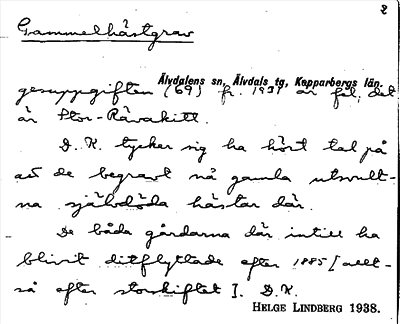 2
Gammelhästgrav
Älvdalens sn, Älvdals tg, Kopparbergs län.
gesuppgiften (69) fr. 1931 är fel, det
är Stor-Rävakitt.
D. K. tycker sig ha hört tal på
att de begravt nå gamla utsvult-
na självdöda hästar där.
De båda gårdarna där intill ha
blivit ditflyttade efter 1885 [allt-
så efter storskiftet]. D.K.
HELGE LINDBERG 1938.